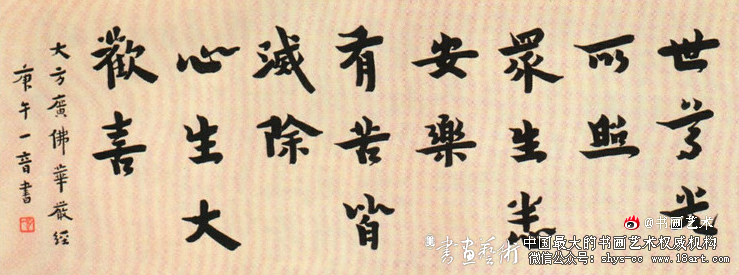 世尊光
所照
眾生悉
安樂
有苦皆
滅除
心生大
歡喜
大方廣佛華嚴經
庚午一音書
@书画艺术
書畫藝術
中国最大的书画艺术权威机构
微信公众号: shys-cc www.18art.com